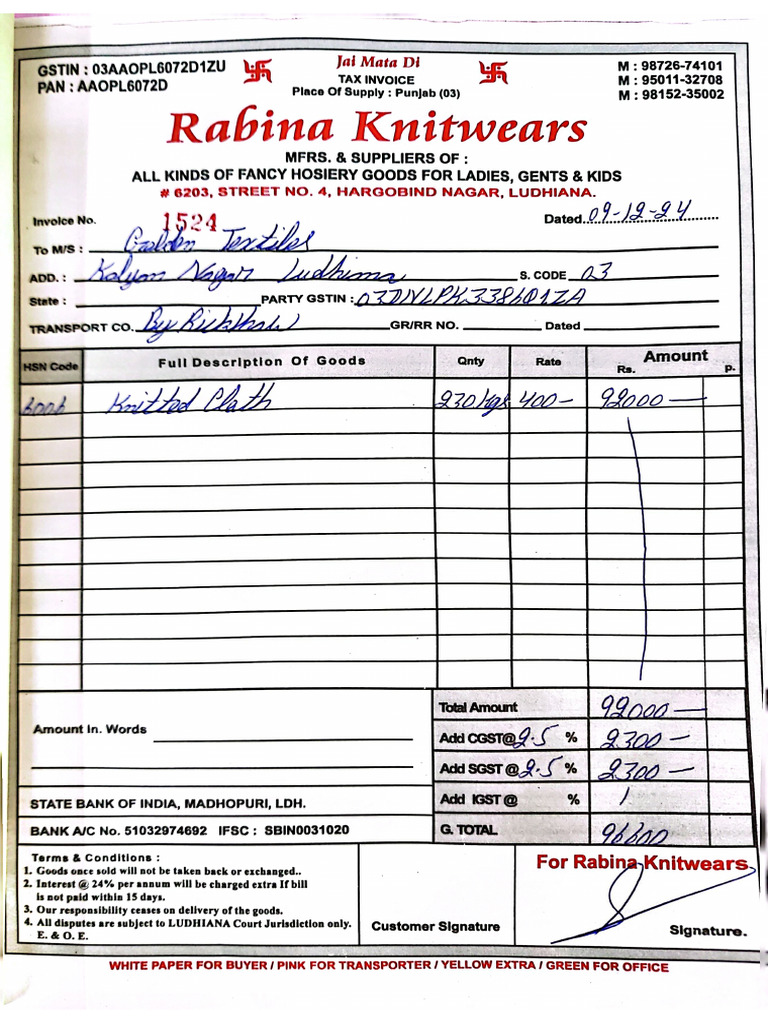 GSTIN : 03AAOPL6072D1ZU
PAN : AAOPL6072D
Jai Mata Di
TAX INVOICE
Place Of Supply : Punjab (03)
M : 98726-74101
M : 95011-32708
M : 98152-35002
Rabina Knitwears
MFRS. & SUPPLIERS OF :
ALL KINDS OF FANCY HOSIERY GOODS FOR LADIES, GENTS & KIDS
# 6203, STREET NO. 4, HARGOBIND NAGAR, LUDHIANA.
Invoice No. 1524 Dated 09-12-24
To M/S : Golden Textiles
ADD. : Kalyan Nagar Ludhiana S. CODE 03
State : PARTY GSTIN :
TRANSPORT CO. By Rickshaw GR/RR NO. Dated
HSN Code Full Description Of Goods Qnty Rate Amount
Rs. P.
6006 Knitted Cloth 230 kgs 400- 92000-
Total Amount 92000-
Add CGST@ 2.5 % 2300-
Add SGST @ 2.5 % 2300-
Add IGST @ %
G. TOTAL 96600
Amount In. Words
STATE BANK OF INDIA, MADHOPURI, LDH.
BANK A/C No. 51032974692 IFSC : SBIN0031020
Terms & Conditions :
1. Goods once sold will not be taken back or exchanged..
2. Interest @ 24% per annum will be charged extra If bill
is not paid within 15 days.
3. Our responsibility ceases on delivery of the goods.
4. All disputes are subject to LUDHIANA Court Jurisdiction only.
E. & O. E.
Customer Signature
For Rabina Knitwears
Signature.
WHITE PAPER FOR BUYER / PINK FOR TRANSPORTER / YELLOW EXTRA / GREEN FOR OFFICE